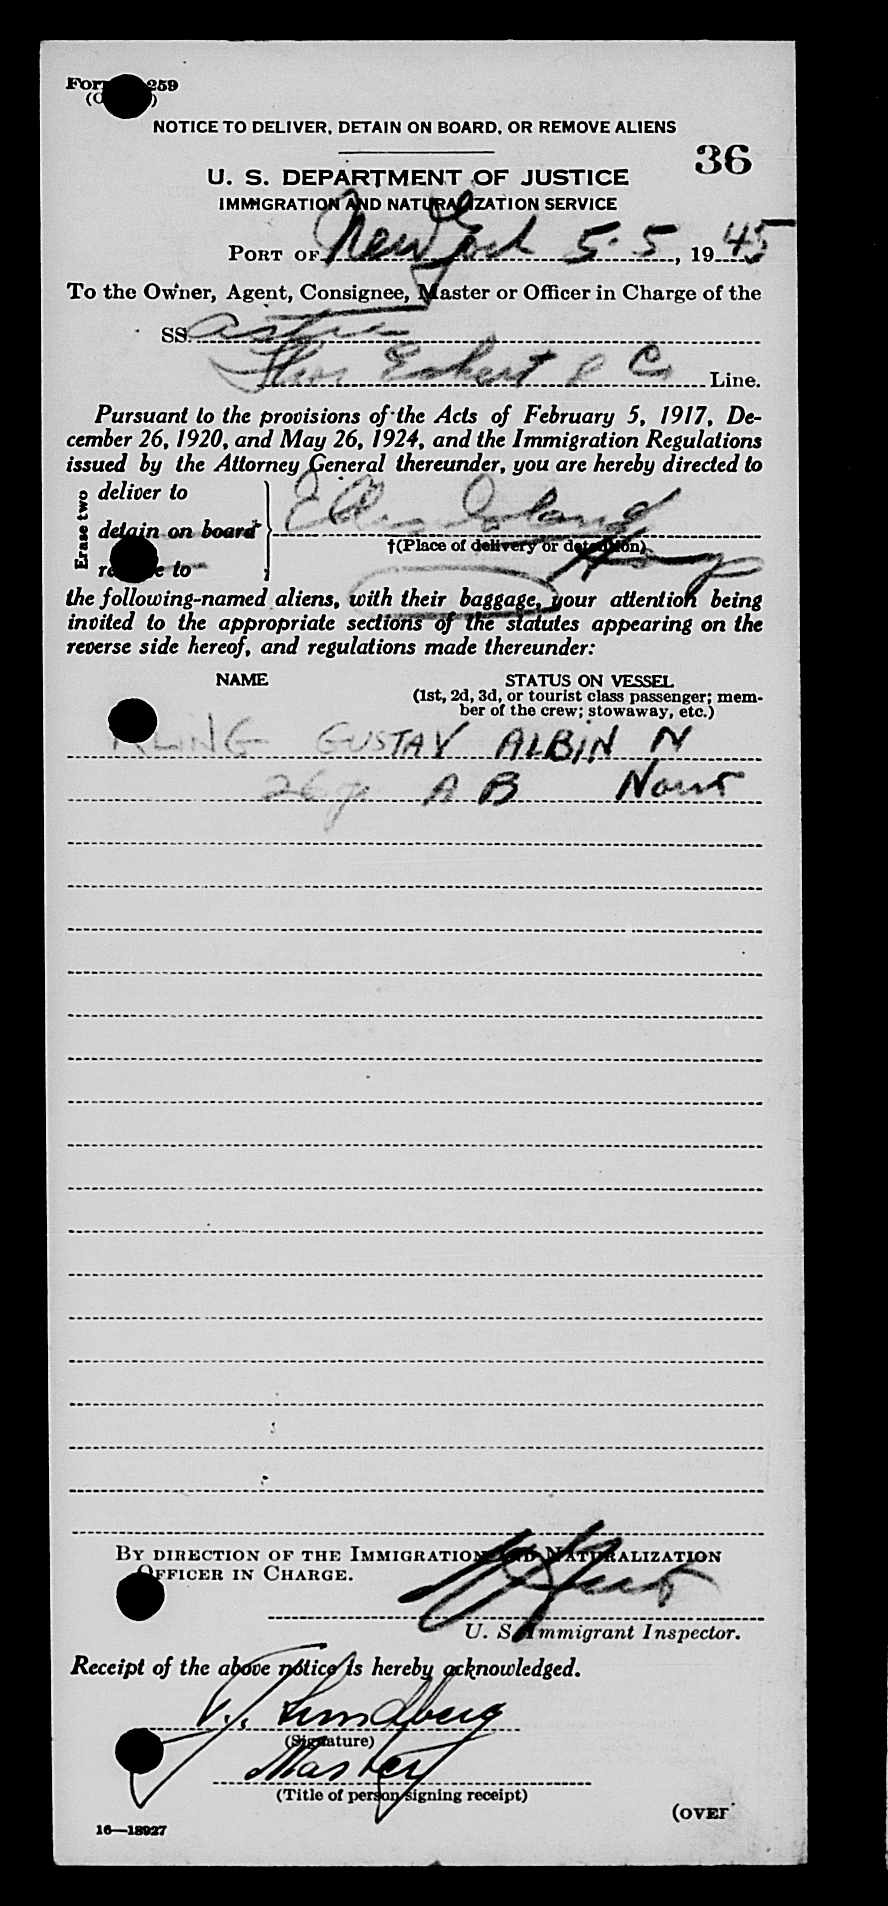 Form 259
NOTICE TO DELIVER, DETAIN ON BOARD, OR REMOVE ALIENS
36
U. S. DEPARTMENT OF JUSTICE
IMMIGRATION AND NATURALIZATION SERVICE
PORT OF New York 5-5, 1945
To the Owner, Agent, Consignee, Master or Officer in Charge of the
SS
Thor Eckert & Co Line.
Pursuant to the provisions of the Acts of February 5, 1917, De-
cember 26, 1920, and May 26, 1924, and the Immigration Regulations
issued by the Attorney General thereunder, you are hereby directed to
Erase two
deliver to
detain on board
remove to
Ellis Island
†(Place of delivery or detention)
the following-named aliens, with their baggage, your attention being
invited to the appropriate sections of the statutes appearing on the
reverse side hereof, and regulations made thereunder:
NAME
STATUS ON VESSEL
(1st, 2d, 3d, or tourist class passenger; mem-
ber of the crew; stowaway, etc.)
GUSTAV ALBIN N
26 A B
BY DIRECTION OF THE IMMIGRATION AND NATURALIZATION
OFFICER IN CHARGE.
U. S. Immigrant Inspector.
Receipt of the above notice is hereby acknowledged.
Lundberg
(Signature)
Master
(Title of person signing receipt)
(OVER
16—18927